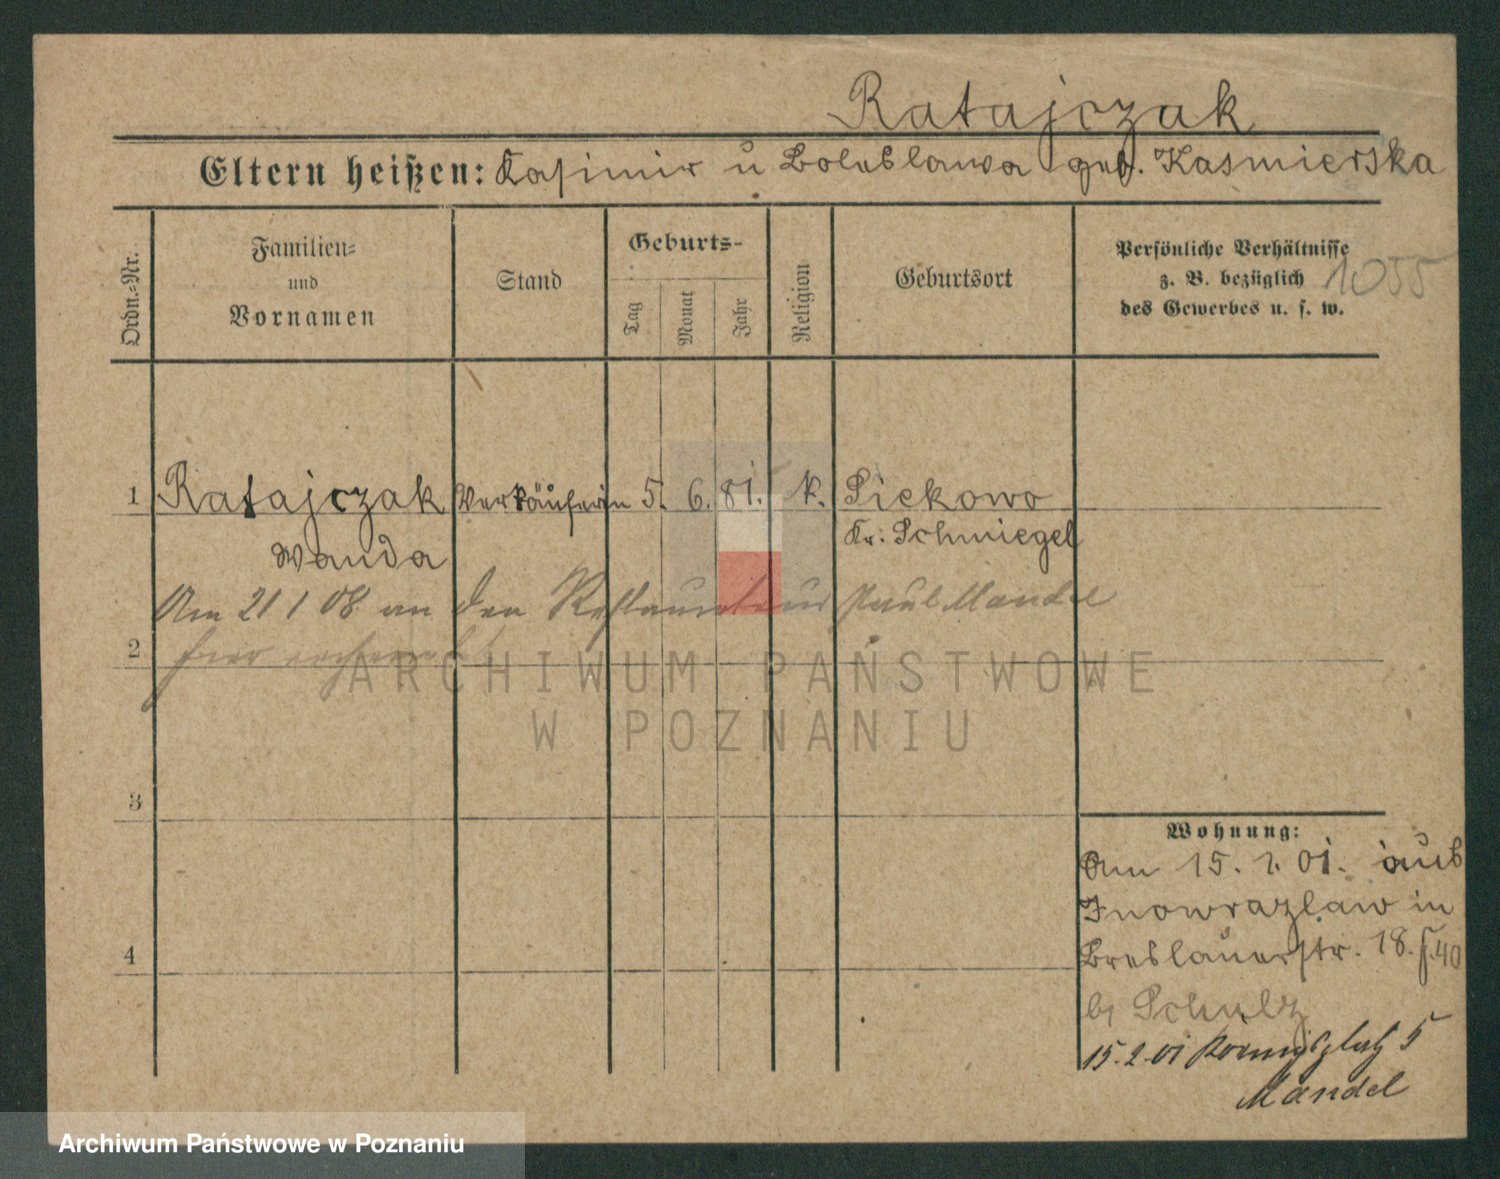 Ratajczak
Eltern heißen: Kasimir u Boleslawa geb. Kasmierska
Ordn.-Nr.
Familien-
und
Vornamen
Stand
Geburts-
Tag
Monat
Jahr
Religion
Geburtsort
Persönliche Verhältnisse
z. B. bezüglich
des Gewerbes u. s. w.
1055
1 Ratajczak Verkäuferin 5. 6. 81. k. Siekowo
Wanda Kr. Schmiegel
Am 21 1 08 an den Restaurateur Paul Mandel
2 hier verheirat
ARCHIWUM PAŃSTWOWE
W POZNANIU
3
Wohnung:
Am 15. 1. 01. aus
Inowrazlaw in
Breslauerstr. 18. 40
4
bei Schulz
15.2.01 Königsplatz 5
Mandel
Archiwum Państwowe w Poznaniu